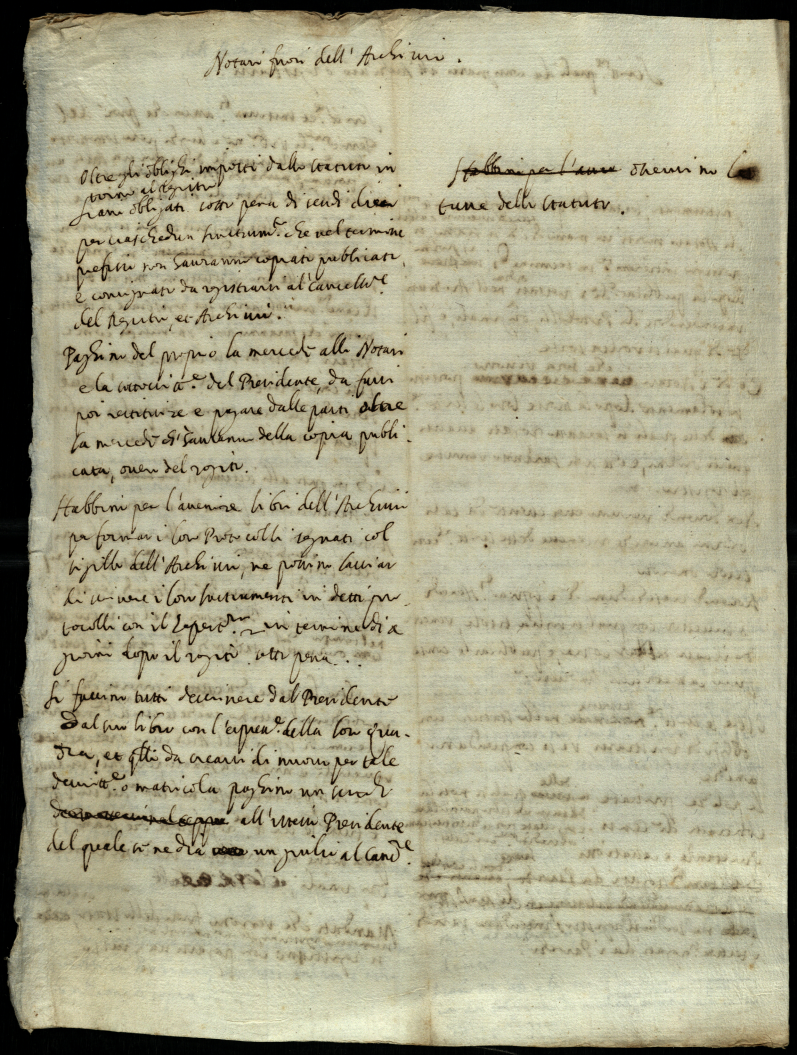 Notari fuori dell'Archivio.
Oltre gli oblighi imposti dalli statuti in
torno al registro
siano obligati sotto pena di scudi dieci
per ciaschedun instrum.to che nel termine
prefisso non havranno copiati publicati,
e consignati da registrarsi al Cancell.re
del Registro, et Archivio.
Paghino del proprio la mercede alli Notari
e la del Presidente, da farsi
poi restituire e pagare dalle parti oltre
la mercede ch'havranno della copia publi
cata, overo del rogito.
Habbino per l'avenire libri dell'Archivio
per formar i loro Protocolli segnati col
sigillo dell'Archivio, ne possino lasciar
di scrivere i loro Instrumenti in detti pro-
tocolli con il in termine di
giorni dopo il rogito sotto pena...
Si faccino tutti descrivere dal Presidente
al suo libro con l' della loro
, et q.lli da crearsi di nuovo per tale
o matricola paghino un
all'istesso Presidente
del quale se ne dia un giulio al Canc.re
Habbino per l'avenire osservino le
tasse delli statuti.